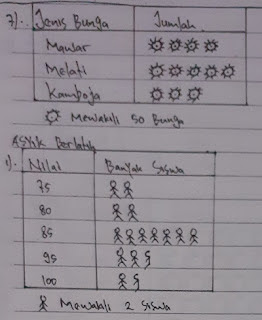 7). Jenis Bunga Jumlah
Mawar
Melati
Kamboja
Mewakili 50 Bunga
ASYik Berlatih
1). Nilai Banyak Siswa
75
80
85
95
100
Mewakili 2 Siswa